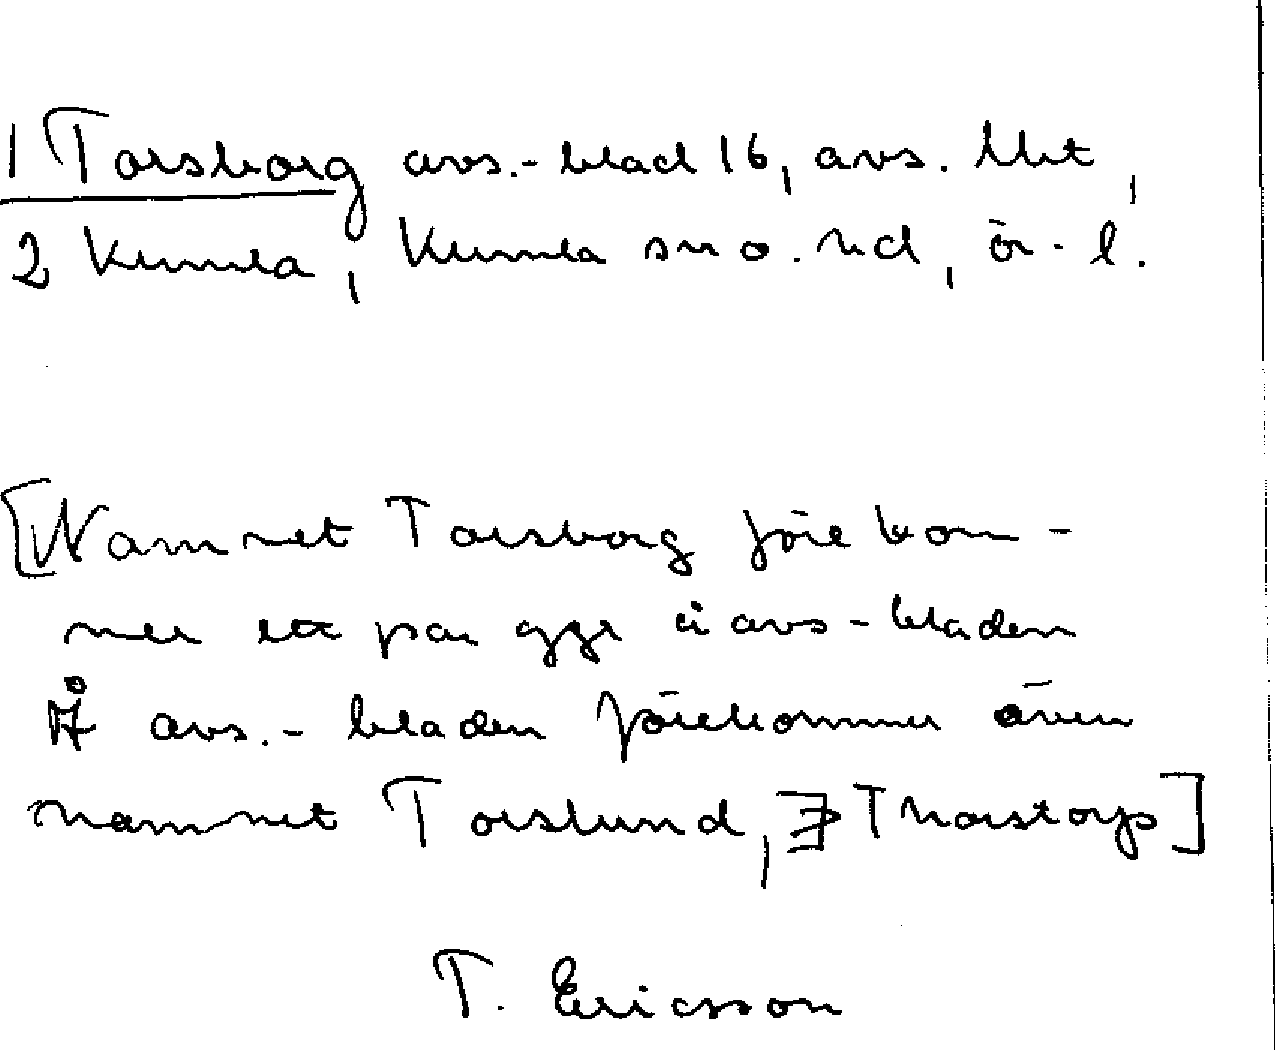 1 Torsborg avs.-blad 16, avs. lht,
2 Kumla, Kumla sn o. hd, ör. l.
[Namnet Torsborg förekom-
mer ett par ggr å avs-bladen
Å avs.-bladen förekommer även
namnet Torslund, Thorstorp]
T. Ericsson